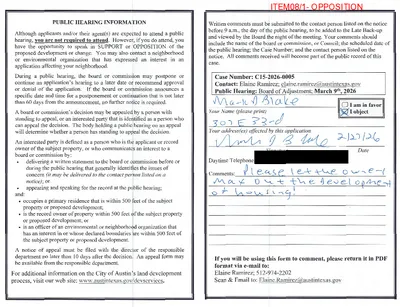 ITEM08/1- OPPOSITION
PUBLIC HEARING INFORMATION
Although applicants and/or their agent(s) are expected to attend a public
hearing, you are not required to attend. However, if you do attend, you
have the opportunity to speak in SUPPORT or OPPOSITION of the
proposed development or change. You may also contact a neighborhood
or environmental organization that has expressed an interest in an
application affecting your neighborhood.
During a public hearing, the board or commission may postpone or
continue an application's hearing to a later date or recommend approval
or denial of the application. If the board or commission announces a
specific date and time for a postponement or continuation that is not later
than 60 days from the announcement, no further notice is required.
A board or commission's decision may be appealed by a person with
standing to appeal, or an interested party that is identified as a person who
can appeal the decision. The body holding a public hearing on an appeal
will determine whether a person has standing to appeal the decision.
An interested party is defined as a person who is the applicant or record
owner of the subject property, or who communicates an interest to a
board or commission by:
• delivering a written statement to the board or commission before or
during the public hearing that generally identifies the issues of
concern (it may be delivered to the contact person listed on a
notice); or
• appearing and speaking for the record at the public hearing;
and:
• occupies a primary residence that is within 500 feet of the subject
property or proposed development;
• is the record owner of property within 500 feet of the subject property
or proposed development; or
• is an officer of an environmental or neighborhood organization that
has an interest in or whose declared boundaries are within 500 feet of
the subject property or proposed development.
A notice of appeal must be filed with the director of the responsible
department no later than 10 days after the decision. An appeal form may
be available from the responsible department.
For additional information on the City of Austin's land development
process, visit our web site: www.austintexas.gov/devservices.
Written comments must be submitted to the contact person listed on the notice
before 9 a.m. the day of the public hearing, to be added to the Late Back-up
and viewed by the Board the night of the meeting. Your comments should
include the name of the board or commission, or Council; the scheduled date of
the public hearing; the Case Number; and the contact person listed on the
notice. All comments received will become part of the public record of this
case.
Case Number: C15-2026-0005
Contact: Elaine Ramirez; elaine.ramirez@austintexas.gov
Public Hearing: Board of Adjustment; March 9th, 2026
Mark J Blake
Your Name (please print)
I am in favor
X I object
307 E 33rd
Your address(es) affected by this application
2/27/26
Signature
Date
Daytime Telephone:
Comments: Please let the owner
max out the development
of housing!
If you will be using this form to comment, please return it in PDF
format via e-mail to:
Elaine Ramirez; 512-974-2202
Scan & Email to: Elaine.Ramirez@austintexas.gov